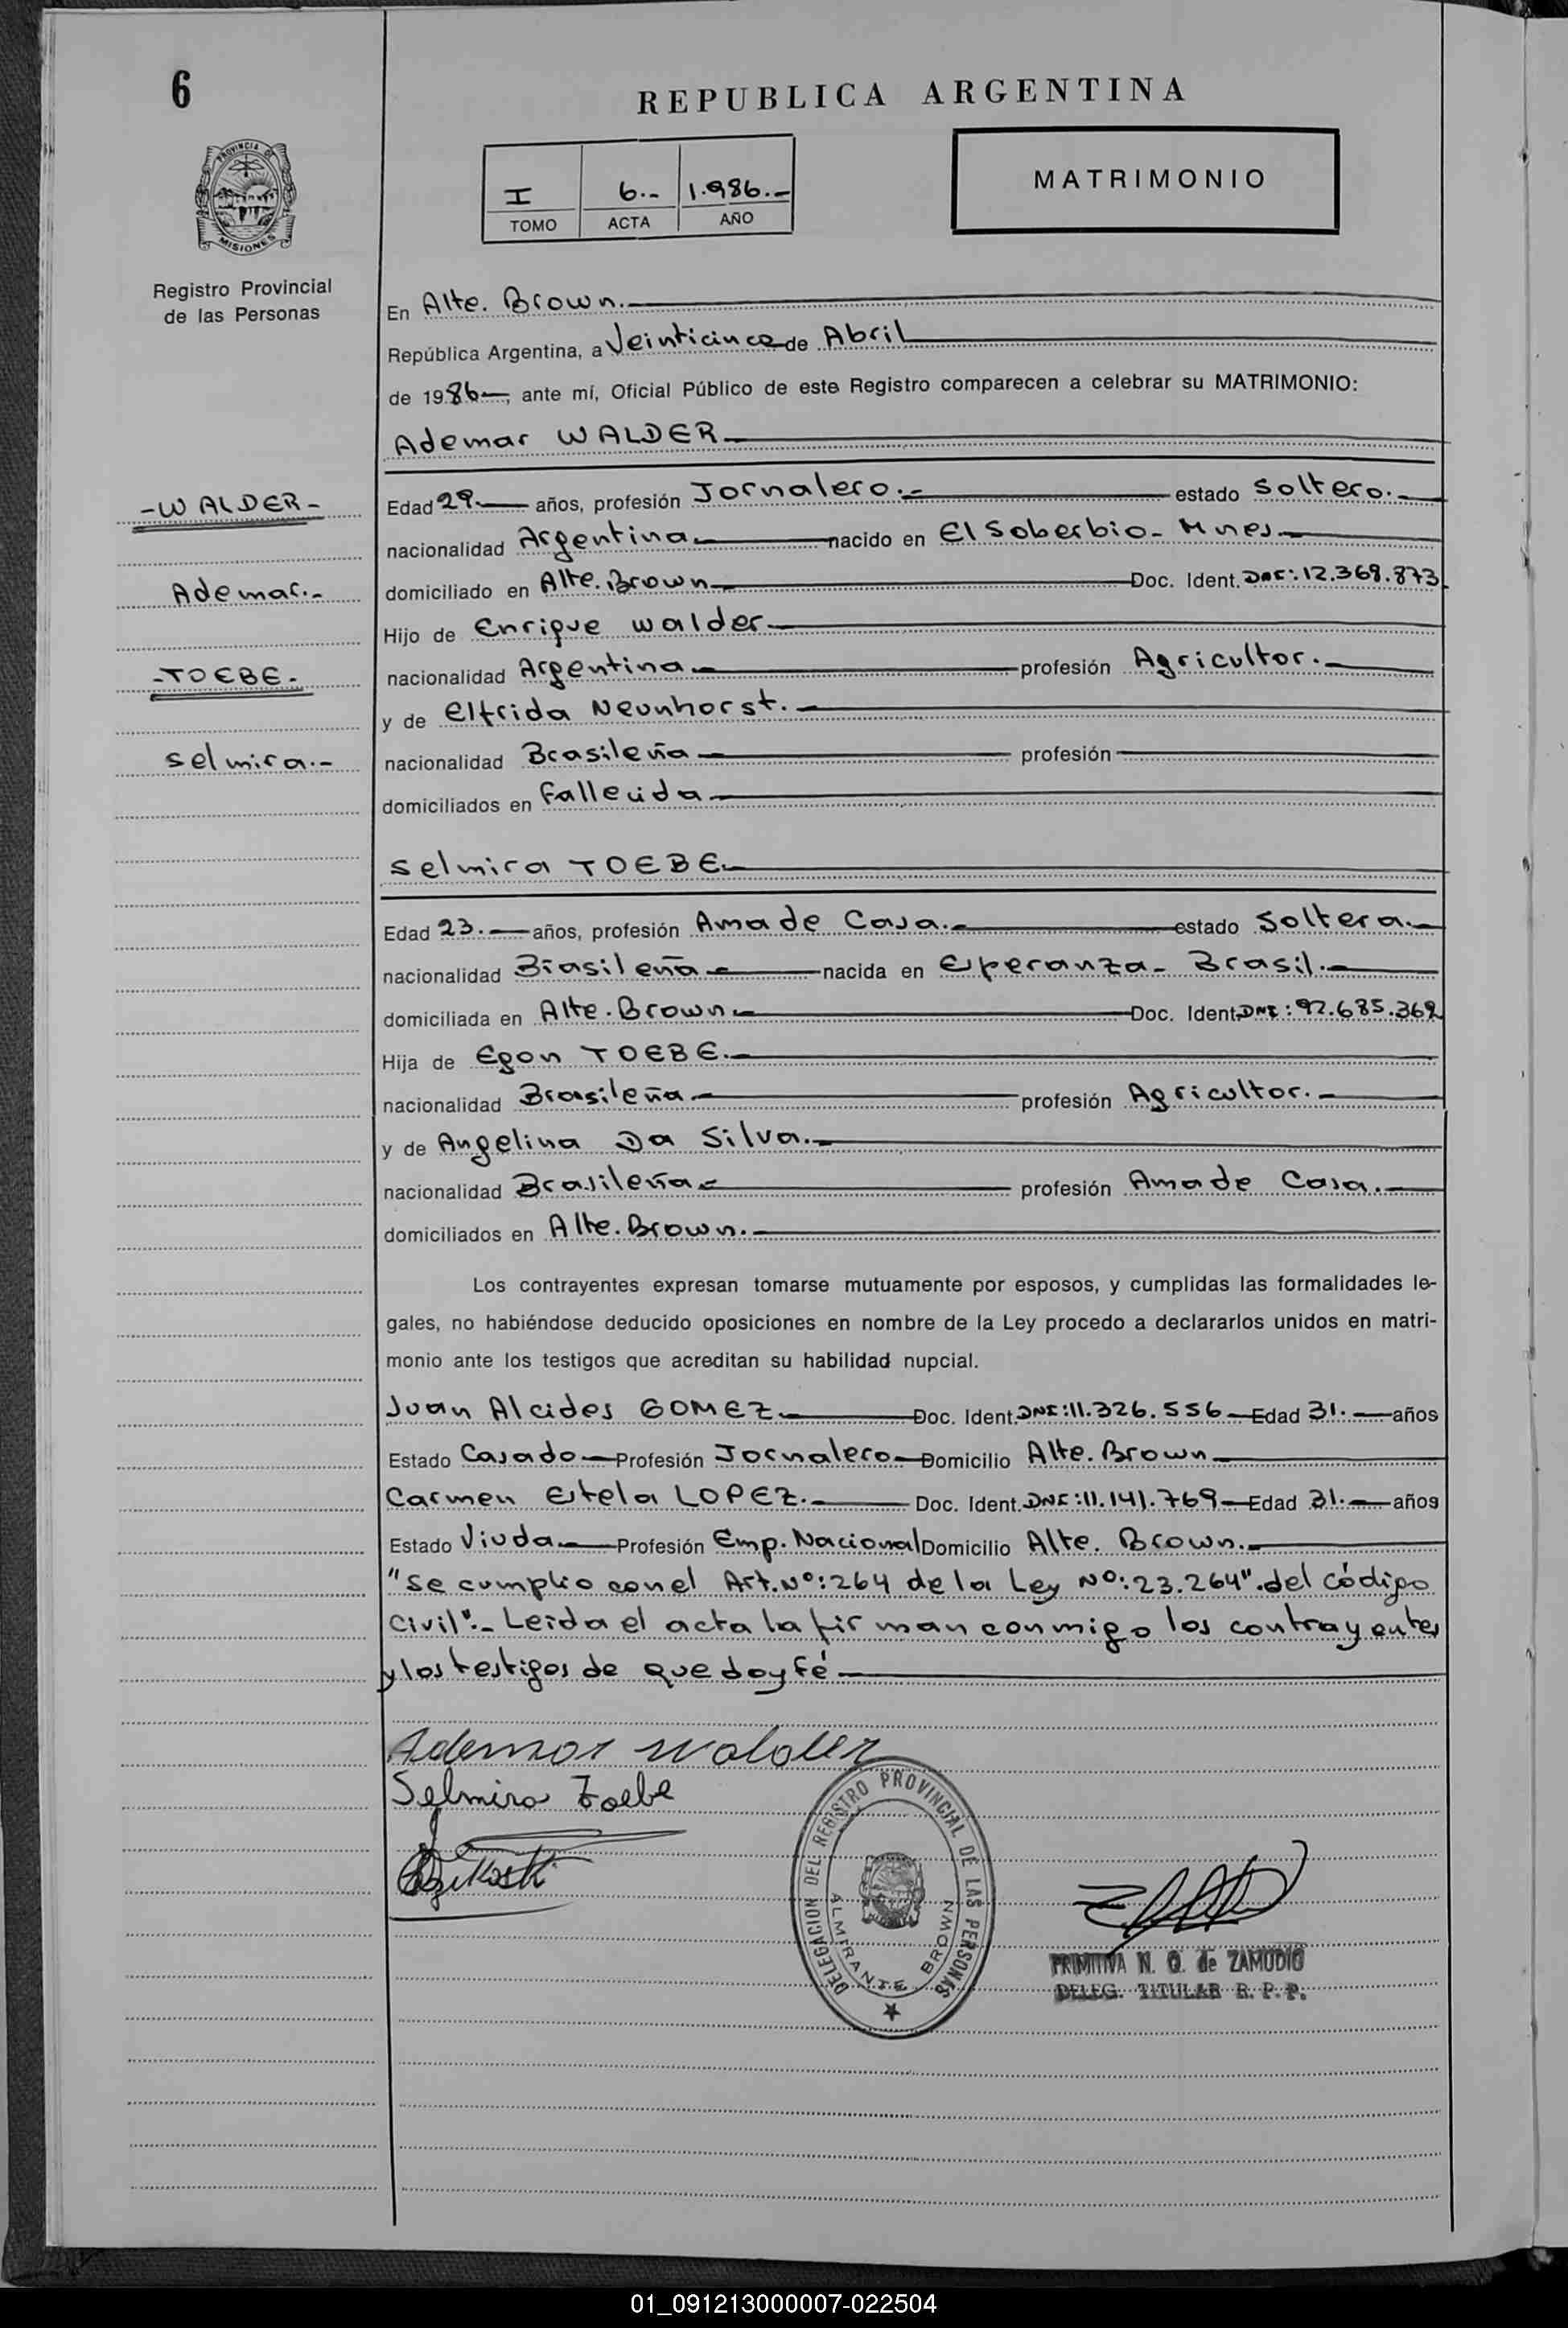 6
REPUBLICA ARGENTINA
PROVINCIA DE MISIONES
I 6.- 1.986.-
TOMO ACTA AÑO
MATRIMONIO
Registro Provincial
de las Personas
En Alte. Brown.
República Argentina, a Veinticinco de Abril
de 1986, ante mí, Oficial Público de este Registro comparecen a celebrar su MATRIMONIO:
Ademar WALDER
-WALDER-
Ademar.-
-TOEBE.-
Selmira.-
Edad 29. años, profesión Jornalero.- estado Soltero.
nacionalidad Argentina nacido en El Soberbio- Mnes
domiciliado en Alte. Brown Doc. Ident. DNI: 12.369.873
Hijo de Enrique Walder
nacionalidad Argentina profesión Agricultor.
y de Elfrida Neunhorst.
nacionalidad Brasileña profesión
domiciliados en fallecida
Selmira TOEBE
Edad 23. años, profesión Ama de Casa. estado Soltera.
nacionalidad Brasileña nacida en Esperanza- Brasil.
domiciliada en Alte. Brown Doc. Ident. DNI: 92.685.369
Hija de Egon TOEBE.
nacionalidad Brasileña profesión Agricultor.
y de Angelina Da Silva.
nacionalidad Brasileña profesión Ama de Casa.
domiciliados en Alte. Brown.
Los contrayentes expresan tomarse mutuamente por esposos, y cumplidas las formalidades le-
gales, no habiéndose deducido oposiciones en nombre de la Ley procedo a declararlos unidos en matri-
monio ante los testigos que acreditan su habilidad nupcial.
Juan Alcides GOMEZ Doc. Ident. DNI: 11.326.556 Edad 31. años
Estado Casado Profesión Jornalero Domicilio Alte. Brown
Carmen Estela LOPEZ. Doc. Ident. DNI: 11.141.769 Edad 31. años
Estado Viuda Profesión Emp. Nacional Domicilio Alte. Brown.
"Se cumplio con el Art. Nº: 264 de la Ley Nº: 23.264". del código
Civil".- Leida el acta la firman conmigo los contrayentes
y los testigos de que doy fé
Ademar Walder
Selmira Toebe
DELEGACION DEL REGISTRO PROVINCIAL DE LAS PERSONAS
ALMIRANTE BROWN
PRIMITIVA N. Q. de ZAMUDIO
DELEG. TITULAR R. P. P.
01_091213000007-022504